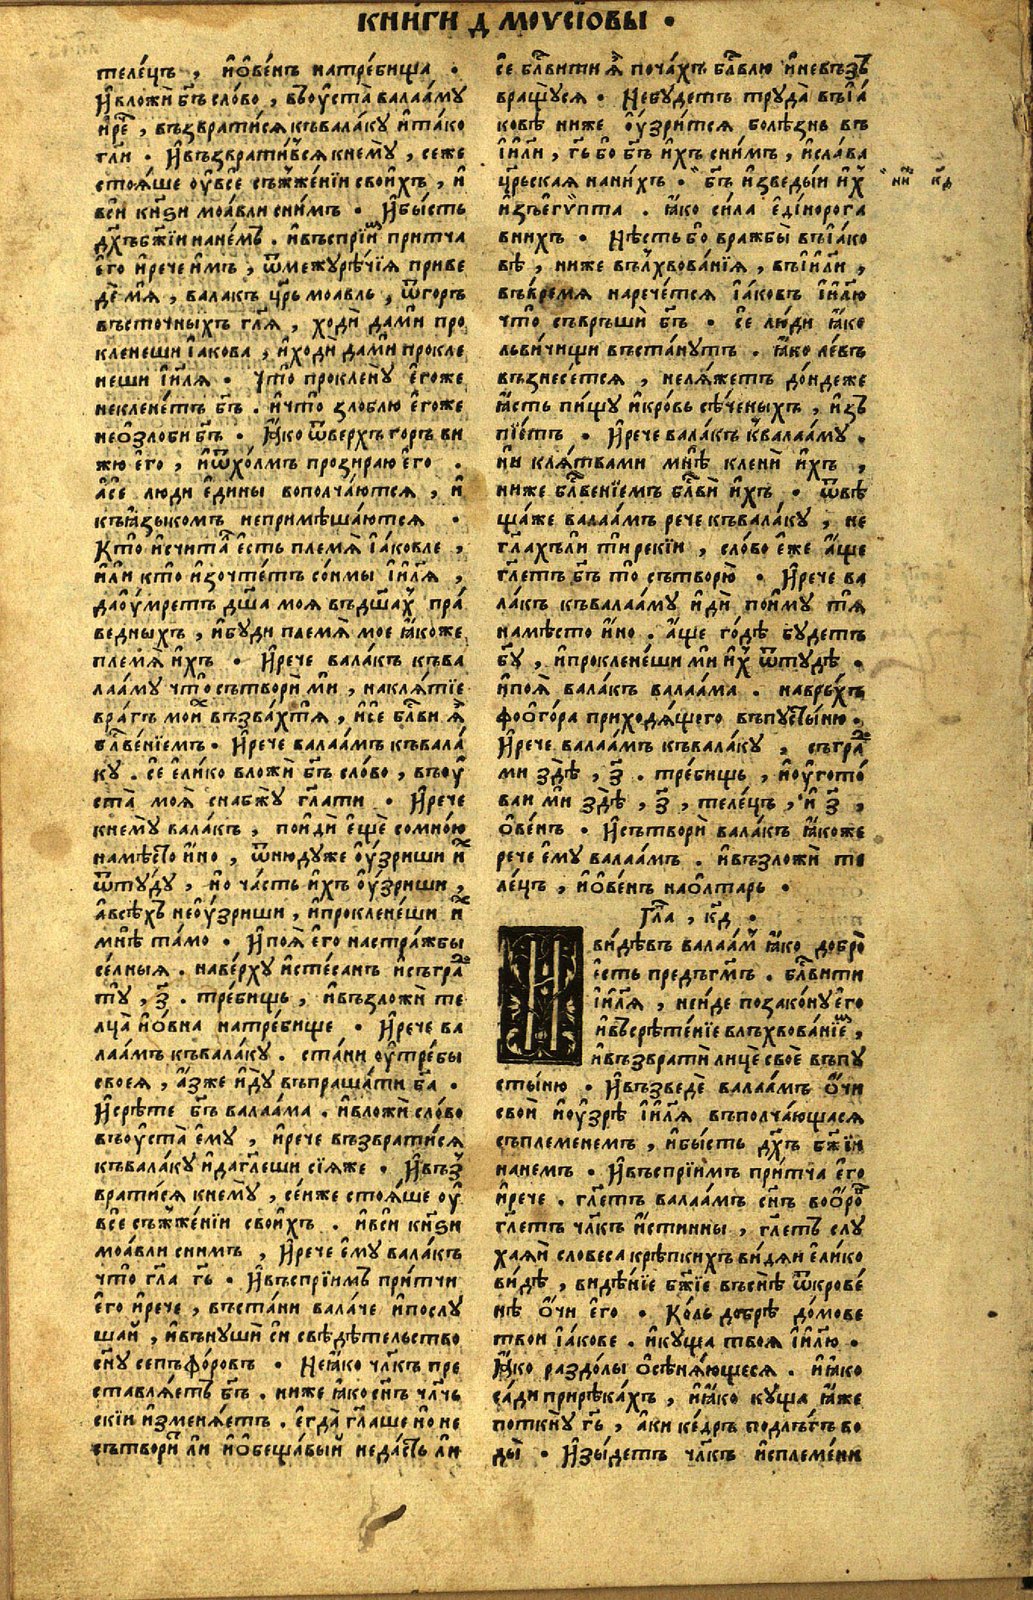 КНИГИ Д҃ МОѴСІѠВЫ ·
теле́цъ , и҆ѻ҆ве́нъ натре́бища ·
И҆вложѝ бг҃ъ сло́во , въоу҆ста̀ валаа́му
и҆рѐ , възврати́сѧ къвала́ку и҆та́ко
гл҃и · И҆възврати́всѧ кнемꙋ̀ , се́же
стоѧ́ше оу҆все съжже́нїи свои́хъ , и҆
вси̑ кнѧ҃ѕи моа́вли сни́мъ · И҆бы́сть
дх҃ъбж҃їи нане́мъ . и҆въспрїи́мъ при́тча
є҆го̀ и҆рече и҆мъ , ѿмежурѣ́чїѧ приве
де́ мѧ , вала́къ цр҃ь моа́вль , ѿго́ръ
въсто́чныхъ гл҃ѧ , ходѝ да́ми про
клене́ши і҆а́кова , и҆ходѝ да́ми прокле
не́ши і҆и҃лѧ · Что̀ проклену̀ є҆го́же
некленет́ъ бг҃ъ . и҆что̀ зло́блю є҆го́же
неѻ҆зло́би бг҃ъ · Ꙗ҆́ко ѿве́рхъ го́ръ ви
жю є҆го̀ , и҆ѿхо́лмъ прозира́ю є҆го̀ .
а҆се́ лю́ди є҆ди́ны вополча́ютсѧ , и҆
къꙗ҆зы́комъ непримѣша́ютсѧ ·
Кто̀ и҆счита́л є҆сть пле́мѧ і҆а́ковле ,
и҆лѝ кто̀ и҆зочте́тъ со́нмы і҆и҃лѧ ,
даоу҆́мретъ дш҃а моѧ̀ въдш҃ахъ пра́
ведныхъ , и҆бу́ди пле́мѧ моѐ ꙗ҆́коже
пле́мѧ и҆́хъ · И҆рече вала́къ къва
лаа́му что̀ сътворѝ ми , наклѧ́тїе
вра́гъ мои́хъ възва́хтѧ , и҆се́ бл҃ви ѧ҆̀
бл҃ве́нїемъ · И҆рече валаа́мъ къвала́
ку . се́ є҆ли́ко вложѝ бг҃ъ сло́во , въоу҆
ста̀ моѧ̀ снабжу̀ гл҃ати · И҆рече
кнемꙋ̀ вала́къ , пои҆дѝ є҆щѐ сомно́ю
намѣ́сто и҆́но , ѿню́дуже оу҆́зриши и҆́хъ
ѿту́ду , но ча́сть и҆́хъ оу҆́зриши ,
а҆всѣ́хъ неоу҆́зриши , и҆проклене́ши и҆́хъ
мнѣ̀ та́мо · И҆поѧ̀ є҆го̀ настра́жбы
се́лныѧ . наве́рху и҆сте́санъ и҆съгра́ди
ту̀ , з҃ . тре́бищь , и҆възложѝ те
лца̀ и҆ѻ҆вна натре́бище · И҆рече ва
лаа́мъ къвала́ку . ста́ни оу҆тре́бы
своеѧ̀ , а҆́зже и҆ду̀ въпраша́ти бг҃а ·
И҆срѣ́те бг҃ъ валаа́ма . и҆вложѝ сло́во
въоу҆ста̀ є҆му̀ , и҆рече възврати́сѧ
къвала́ку и҆дагл҃еши сїѧ́же · И҆въз
врати́сѧ кнемꙋ̀ , се́иже стоѧ́ше оу҆
всѐ съжже́нїи свои́хъ . и҆всѝ кнѧ҃ѕи
моа́вли сни́мъ , И҆рече є҆му̀ вала́къ
что̀ гл҃а гь҃ · И҆въспрїи́мъ при́тчи
є҆го̀ и҆рече , въста́ни вала́че и҆послу́
шай , и҆вънушѝ си свѣдѣ́тельство
сн҃у сепъфо́ровъ · Неꙗ҆́ко чл҃къ пре
ставлѧ́етъ бг҃ъ . ниже ꙗ҆́ко сн҃ъ чл҃чь
скїи и҆змѣнѧ́етъ . є҆гда̀ гл҃аше и҆но не
сътвори́т ли и҆ѻ҆беща́вый неда́сть ли
се́ бл҃вити ѧ҆̀ поча́хъ бл҃авлю и҆невъзъ
вращу́сѧ · Небу́детъ труда̀ въі҆а́
ковѣ ниже оу҆́зритсѧ болѣ́знь въ
і҆и҃ли , гь҃ бо бг҃ъ и҆́хъ сни́мъ , и҆сла́ва
цр҃ьскаѧ нани́хъ · бг҃ъ и҆зведы́и и҆́хъ
и҆зъегѵ́пта . ꙗ҆́ко си́ла є҆ді́норога
вни́хъ · Нѣ́сть бо вражбы̀ въі҆а́ко
вѣ , ниже вълхвова́нїѧ , въі҆и҃ли ,
въвре́мѧ нарече́тсѧ і҆а́ковъ і҆и҃лю
что̀ съврьшѝ бг҃ъ · се́ лю́ди ꙗ҆́ко
льви́чищи въста́нутъ . ꙗ҆́ко ле́въ
възнесе́тсѧ , нелѧ́жетъ до́ндеже
ꙗ҆́сть пи́щу и҆кро́вь сѣ́ченыхъ , и҆зъ
пїе́тъ · И҆рече вала́къ к҆валаа́му .
ни клѧ́твами мнѣ̀ кленѝ и҆́хъ ,
ниже бл҃ве́нїемъ бл҃вѝ и҆́хъ · ѿвѣ
ща́же валаа́мъ рече къвала́ку , не
гл҃ахъли ти реки́и , сло́во є҆́же а҆́ще
гл҃етъ бг҃ъ то̀ сътворю̀ · И҆рече ва
ла́къ къвалаа́му и҆дѝ пои҆му̀ тѧ̀
намѣ́сто и҆́но . а҆́ще го́дѣ будетъ
бг҃у , и҆проклене́ши ми и҆́хъ ѿту́дѣ ·
и҆поѧ̀ вала́къ валаа́ма . наврьхъ
фоѻ҆го́ра приходѧ́щего въпусты́ню .
И҆рече валаа́мъ къвала́ку , съгра́ди
ми здѣ̀ , з҃ . тре́бищь , и҆оу҆гото́
ваи ми здѣ̀ , з҃ , теле́цъ , и҆ з҃ ,
ѻ҆ве́нъ · И҆сътворѝ вала́къ ꙗ҆́коже
рече є҆му̀ валаа́мъ . и҆възложѝ те
ле́цъ , и҆ѻ҆ве́нъ наѻ҆лта́рь ·
Гл҃а , к҃д ·
И ви́дѣвъ валаа́мъ ꙗ҆́ко добро̀
є҆́сть предъгм҃ъ . бл҃вити
і҆и҃лѧ , неи́де позако́нуего̀
и҆въсрѣ́тенїе влъхвова́нїемъ ,
и҆възвратѝ лицѐ своѐ въпу
сты́ню · И҆възведѐ валаа́мъ ѻ҆́чи
своѝ и҆оу҆зрѣ̀ і҆и҃лѧ въполча́ющасѧ
съпле́менемъ , и҆бы́сть дх҃ъ бж҃їи
нане́мъ · И҆въспрїи́мъ при́тча є҆го̀
и҆рече . гл҃етъ валаа́мъ сн҃ъ воѻ҆́ровъ
гл҃етъ чл҃къ и҆́стинны , гл҃етъ слу
хаѧ́и словеса крѣ́пкихъ ви́дѧи є҆ли́ко
ви́дѣ , видѣ́нїе бж҃їе въснѣ̀ ѿкрове́
нѣ ѻ҆́чи є҆го̀ · Ко́ль добрѣ̀ до́мове
твои і҆а́кове . и҆ку́ща твоѧ̀ і҆и҃лю ·
Ꙗ҆́ко раздо́лы ѻ҆сѣнѧ́ющесѧ . и҆ꙗ҆́ко
са́ди прирѣка́хъ , и҆ꙗ҆́ко ку́ща ꙗ҆́же
поткну̀ гь҃ , а҆́ки ке́дръ подлѣ́гъ во
ды̀ · И҆зы́детъ чл҃къ и҆спле́мени